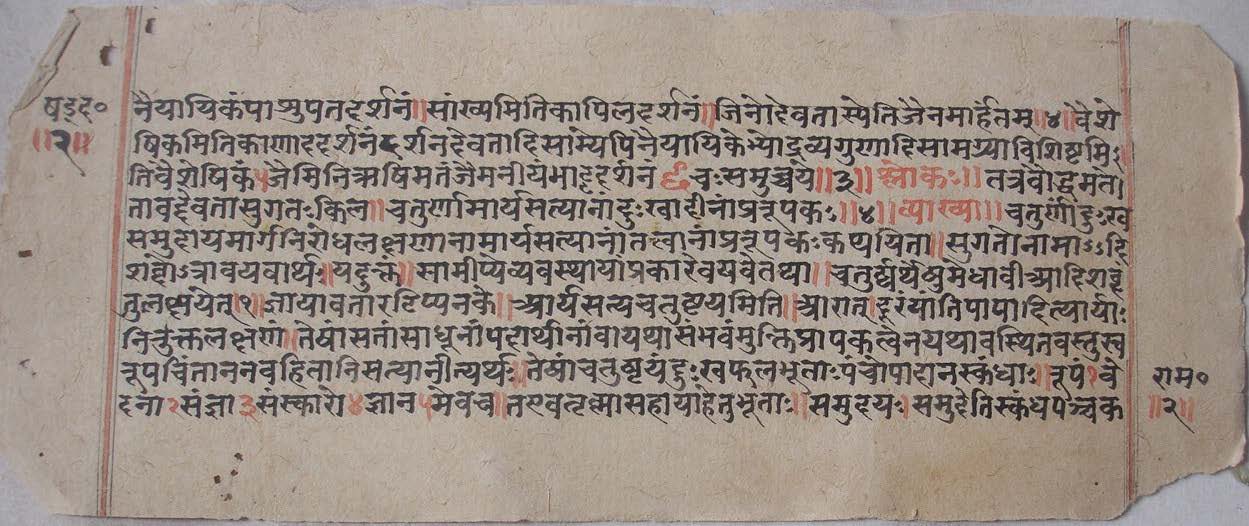 षड्द०
॥२॥
नैयायिकंपाशुपतदर्शनं॥सांख्यमितिकापिलदर्शनं॥जिनोदेवतास्येतिजैनमार्हतम्॥४॥वैशे
षिकमितिकाणाददर्शनंदर्शनदेवतादिसाम्येपिनैयायिकेभ्योद्रव्यगुणादिसामग्र्याविशिष्टमि
तिवैशेषिकं५जैमिनिऋषिमतंजैमनीयंभाट्टदर्शनं६चःसमुच्चये॥३॥श्लोकः॥तत्रबौद्धमते
तावद्देवतासुगतःकिल॥चतुर्णामार्यसत्यानांदुःखादीनांप्ररूपकः॥४॥व्याख्या॥चतुर्णांदुःख
समुदायमार्गनिरोधलक्षणानामार्यसत्यानांतत्वानांप्ररूपकःकथयिता॥सुगतोनामाऽऽदि
शब्दोऽत्रावयवार्थः॥यदुक्तं॥सामीप्येव्यवस्थायांप्रकारेवयवेतथा॥चतुर्ष्वर्थेषुमेधावीआदिशब्दं
तुलक्षयेत्१॥न्यायावतारटिप्पनके॥आर्यसत्यचतुष्टयमिति॥आरात्दूरेयातिपापादित्यार्याः
निरुक्तलक्षणा॥तेषांसतांसाधूनांपदार्थानांवायथासंभवंमुक्तिप्रापकत्वेनयथावस्थितवस्तुस्व
रूपचिंताननवहितानिसत्यानीत्यर्थः॥तेषांचतुष्टयंदुःखफलभूताःपंचोपादानस्कंधाः॥रूपं१वे
दना२संज्ञा३संस्कारो४ज्ञान५मेवच॥तएवतृष्णासहायाहेतुभूताः॥समुदयः।समुदेतिस्कंधपञ्चक
राम०
॥२॥